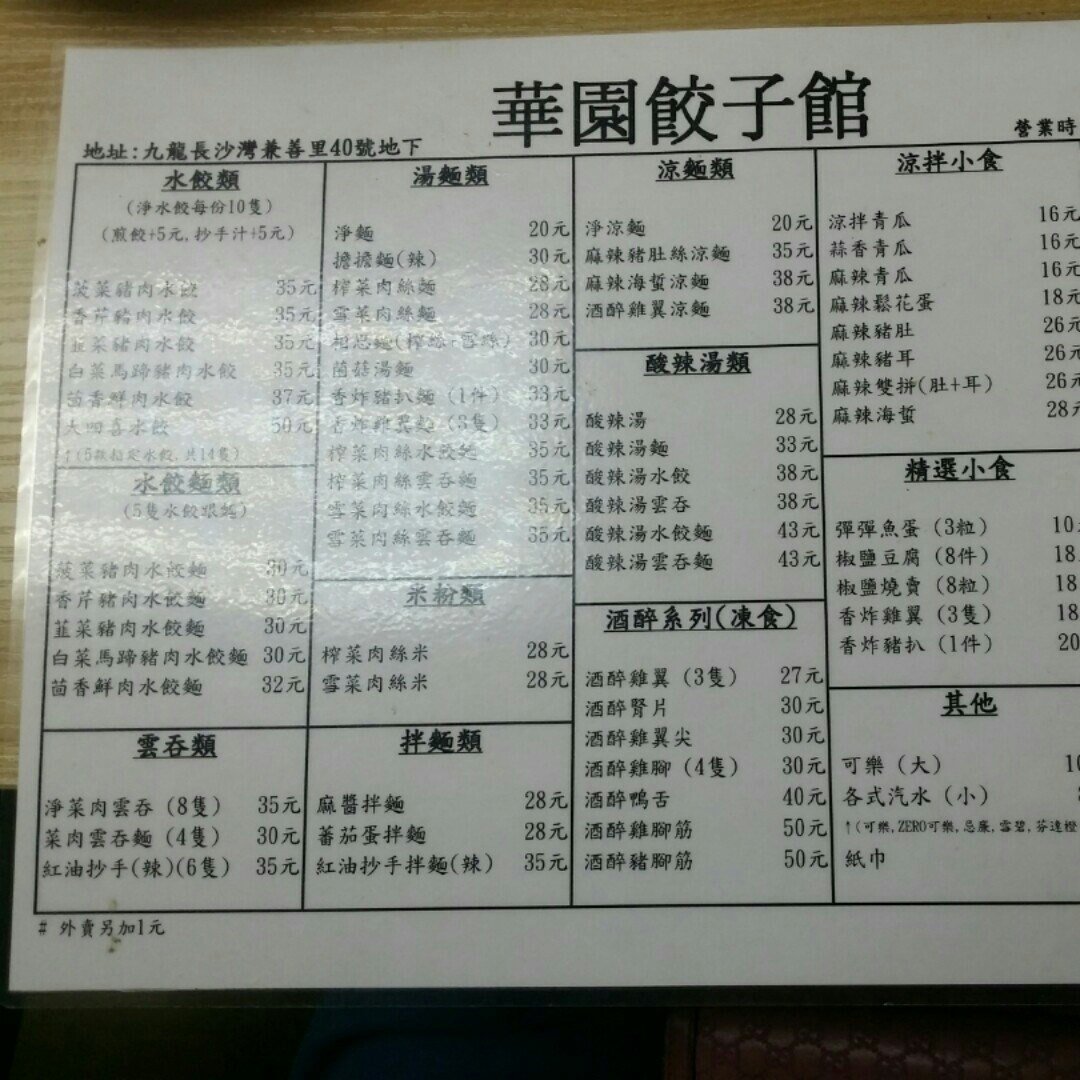 華園餃子館
地址:九龍長沙灣兼善里40號地下
營業時
水餃類
(淨水餃每份10隻)
(煎餃+5元,抄手汁+5元)
菠菜豬肉水餃 35元
香芹豬肉水餃 35元
韮菜豬肉水餃 35元
白菜馬蹄豬肉水餃 35元
茴香鮮肉水餃 37元
大四喜水餃 50元
↑(5款指定水餃,共14隻)
水餃麵類
(5隻水餃跟麵)
菠菜豬肉水餃麵 30元
香芹豬肉水餃麵 30元
韮菜豬肉水餃麵 30元
白菜馬蹄豬肉水餃麵 30元
茴香鮮肉水餃麵 32元
雲吞類
淨菜肉雲吞(8隻) 35元
菜肉雲吞麵(4隻) 30元
紅油抄手(辣)(6隻) 35元
湯麵類
淨麵 20元
擔擔麵(辣) 30元
榨菜肉絲麵 28元
雪菜肉絲麵 28元
相思麵 30元
菌菇湯麵 30元
香炸豬扒麵(1件) 33元
香炸雞翼麵(3隻) 33元
榨菜肉絲水餃麵 35元
榨菜肉絲雲吞麵 35元
雪菜肉絲水餃麵 35元
雪菜肉絲雲吞麵 35元
米粉類
榨菜肉絲米 28元
雪菜肉絲米 28元
拌麵類
麻醬拌麵 28元
蕃茄蛋拌麵 28元
紅油抄手拌麵(辣) 35元
涼麵類
淨涼麵 20元
麻辣豬肚絲涼麵 35元
麻辣海蜇涼麵 38元
酒醉雞翼涼麵 38元
酸辣湯類
酸辣湯 28元
酸辣湯麵 33元
酸辣湯水餃 38元
酸辣湯雲吞 38元
酸辣湯水餃麵 43元
酸辣湯雲吞麵 43元
酒醉系列(凍食)
酒醉雞翼(3隻) 27元
酒醉腎片 30元
酒醉雞翼尖 30元
酒醉雞腳(4隻) 30元
酒醉鴨舌 40元
酒醉雞腳筋 50元
酒醉豬腳筋 50元
涼拌小食
涼拌青瓜 16元
蒜香青瓜 16元
麻辣青瓜 16元
麻辣鬆花蛋 18元
麻辣豬肚 26元
麻辣豬耳 26元
麻辣雙拼(肚+耳) 26元
麻辣海蜇 28元
精選小食
彈彈魚蛋(3粒) 10
椒鹽豆腐(8件) 18
椒鹽燒賣(8粒) 18
香炸雞翼(3隻) 18
香炸豬扒(1件) 20
其他
可樂(大) 10
各式汽水(小)
↑(可樂,ZERO可樂,忌廉,雪碧,芬達橙
紙巾
# 外賣另加1元